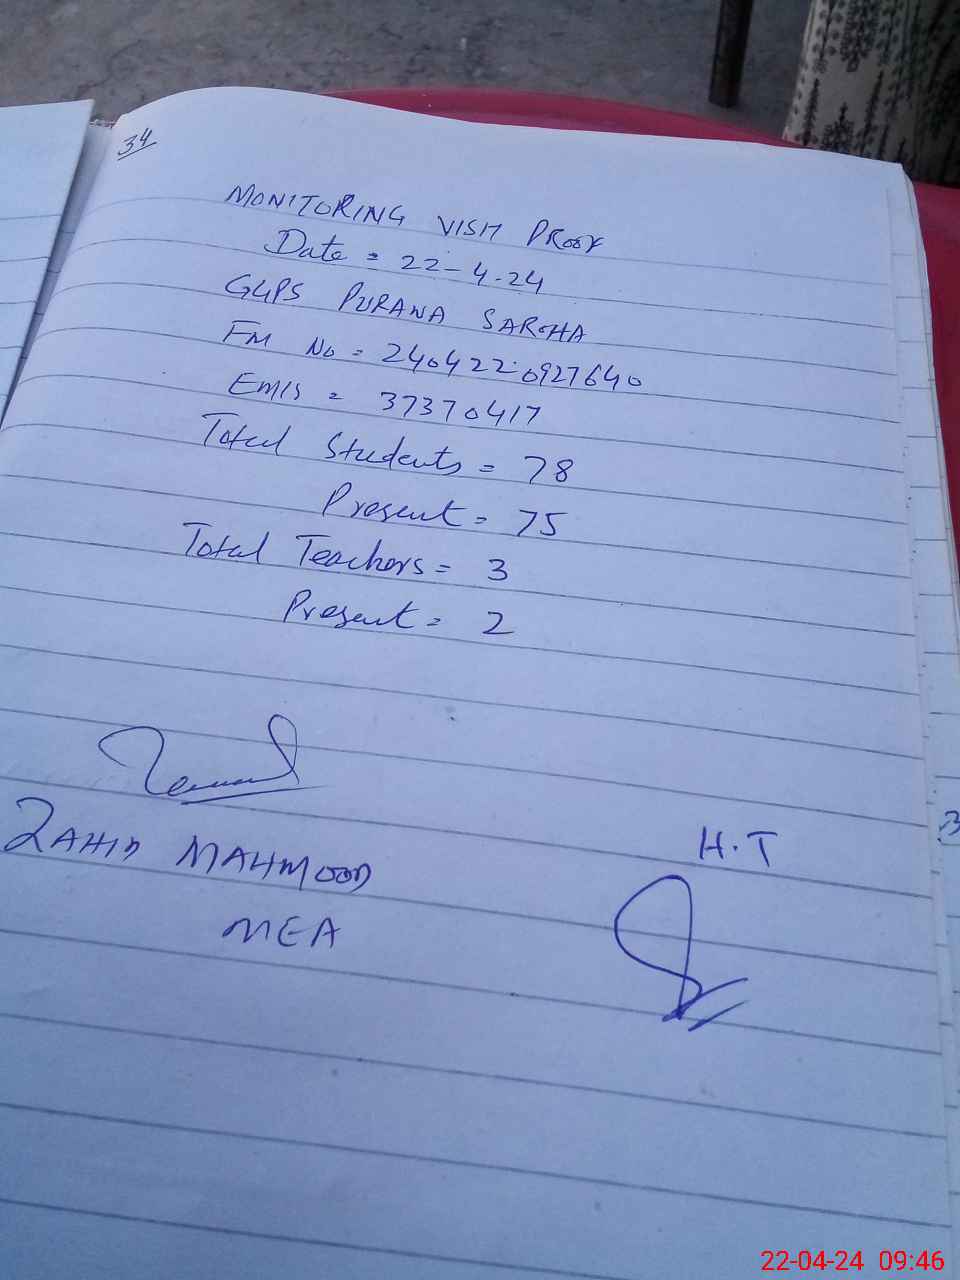 34
MONITORING VISIT PROOF
Date = 22-4-24
GGPS PURANA SARGHA
FM No = 240422-0927640
EMIS = 37370417
Total Students = 78
Present = 75
Total Teachers = 3
Present = 2
ZAHID MAHMOOD
MEA
H.T
22-04-24 09:46